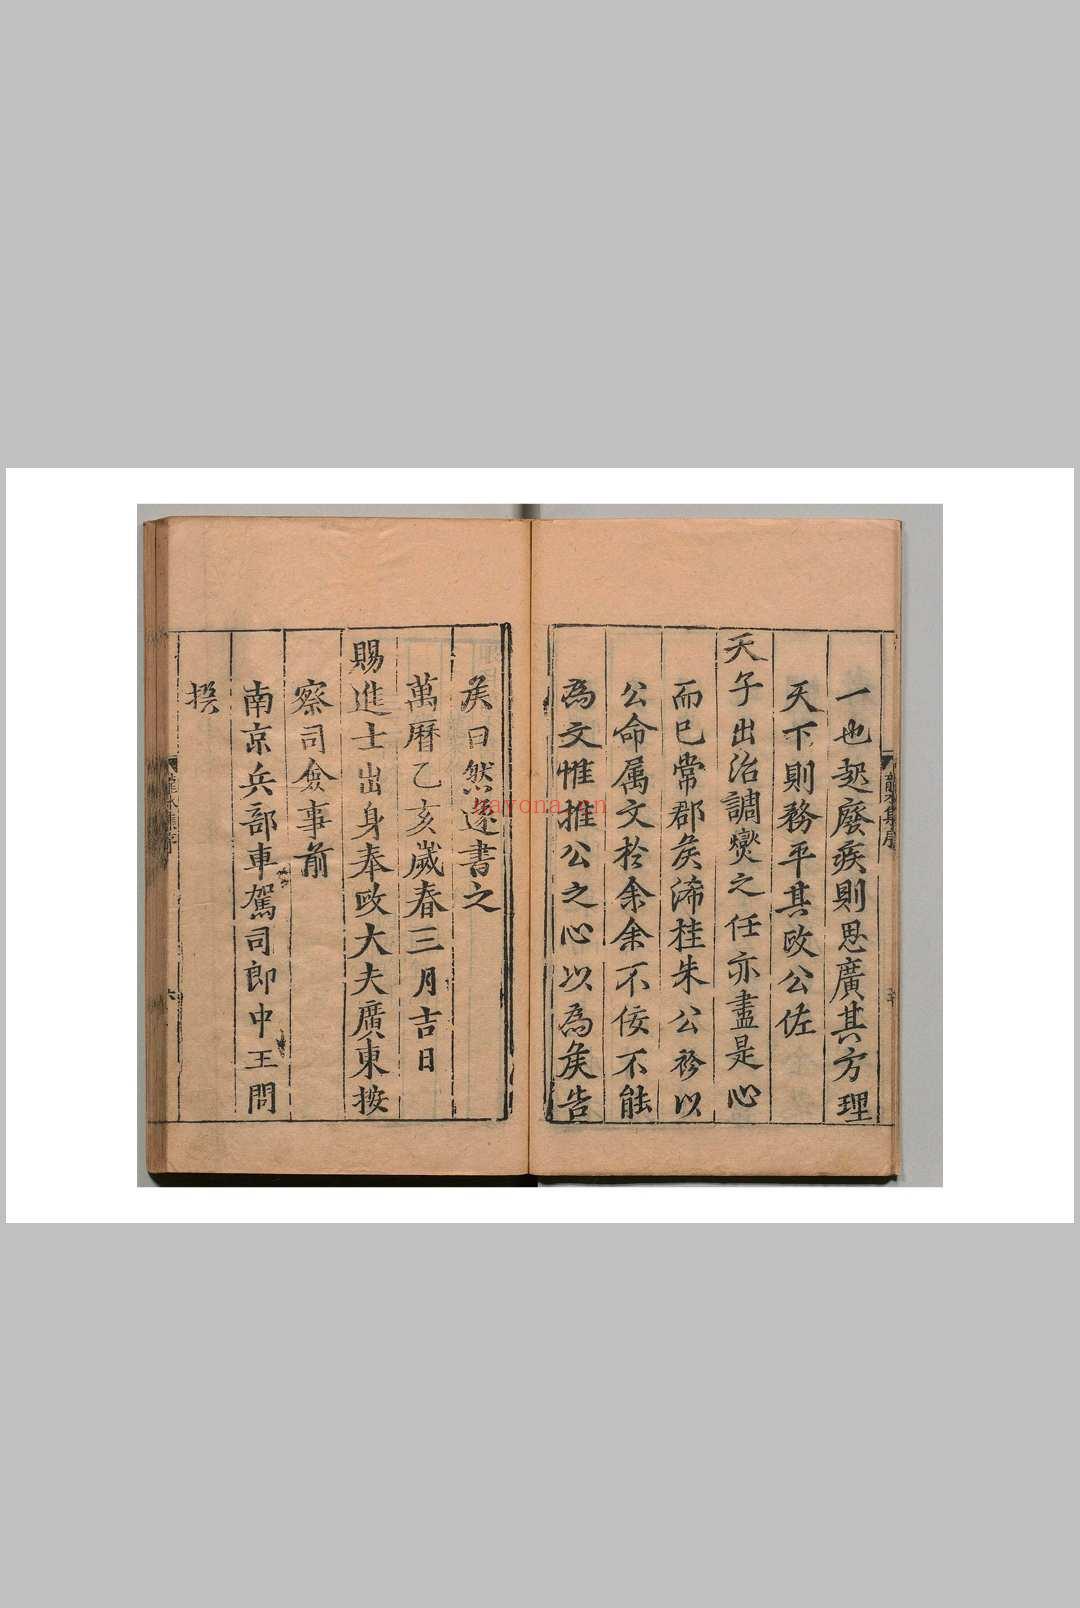 一也起廢疾則思廣其方理
天下則務平其政公佐
天子出治調爕之任亦盡是心
而已常郡矦浠桂朱公衫以
公命属文於余余不佞不能
為文惟推公之心以為矦告
矦曰然遂書之
萬曆乙亥歲春三月吉日
賜進士出身奉政大夫廣東按
察司僉事前
南京兵部車駕司郎中王問
撰
集序
六
nayona.cn